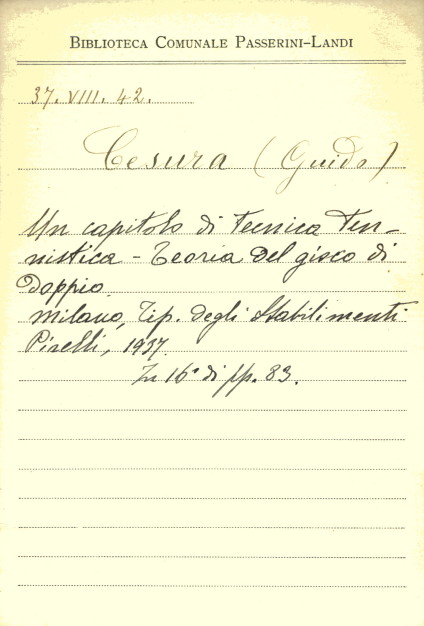 BIBLIOTECA COMUNALE PASSERINI-LANDI
37. VIII. 42.
Cesura (Guido)
Un capitolo di Tecnica Ten-
nistica - Teoria del gioco di
Doppio.
Milano, Tip. degli Stabilimenti
Pirelli, 1937.
In 16° di pp. 83.